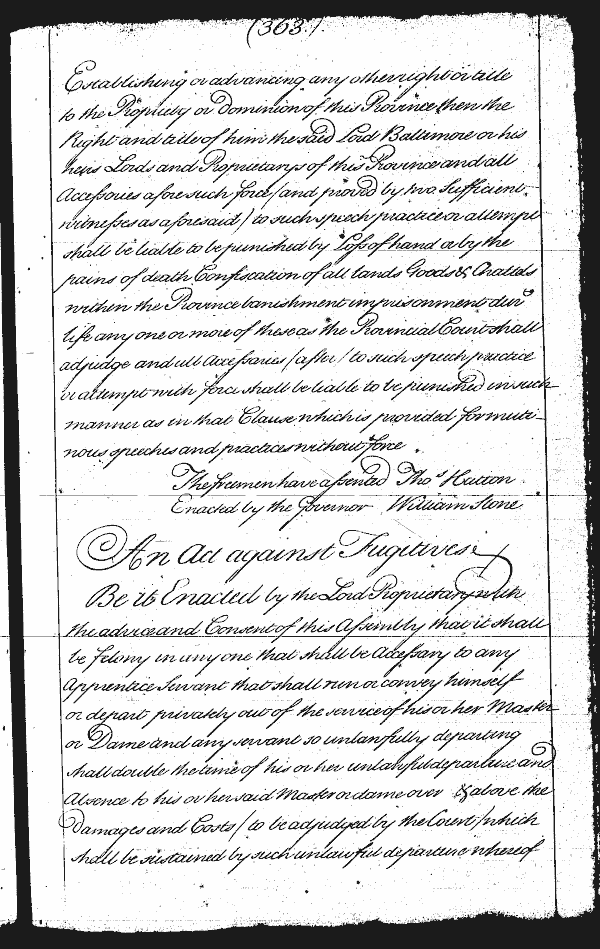 (363.)
Establishing or advancing any other right or title
to the Propriety or Dominion of this Province then the
Right and title of him the said Lord Baltimore or his
heirs Lords and Proprietarys of this Province and all
Accessories afore such force (and proved by two Sufficient
witnesses as aforesaid) to such speech practice or attempt
shall be liable to be punished by Loss of hand or by the
pains of death Confiscation of all lands Goods & Chattels
within the Province banishment imprisonment dur
life any one or more of these as the Provincial Court shall
adjudge and all Accessaries (after) to such speech practice
or attempt with force shall be liable to be punished in such
manner as in that Clause which is provided for muti-
nous speeches and practices without force
The freemen have assented Tho.s Hatton
Enacted by the Governor William Stone
An Act against Fugitives
Be it Enacted by the Lord Proprietary with
the advice and Consent of this Assembly that it shall
be felony in any one that shall be Accessary to any
Apprentice Servant that shall run or convey himself
or depart privately out of the service of his or her Master
or Dame and any servant so unlawfully departing
shall double the time of his or her unlawfull departure and
Absence to his or her said Master or dame over & above the
damages and Costs (to be adjudged by the Court) which
shall be sustained by such unlawful departure whereof